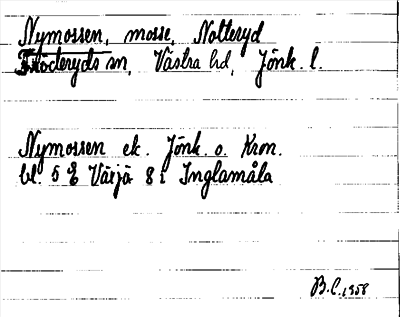 Nymossen, mosse, Notteryd
Flöderyds sn, Västra hd, Jönk. l.
Nymossen ek. Jönk. o. Kron.
bl. 5 E Värjö 8 i Inglamåla
B.C. 1958